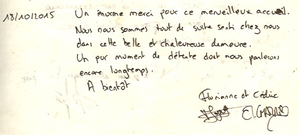 18/10/2015
Un énorme merci pour ce merveilleux accueil.
Nous nous sommes tout de suite senti chez nous
dans cette belle et chaleureuse demeure.
Un pur moment de détente dont nous parlerons
encore longtemps.
A bientôt
Florianne et Cédric